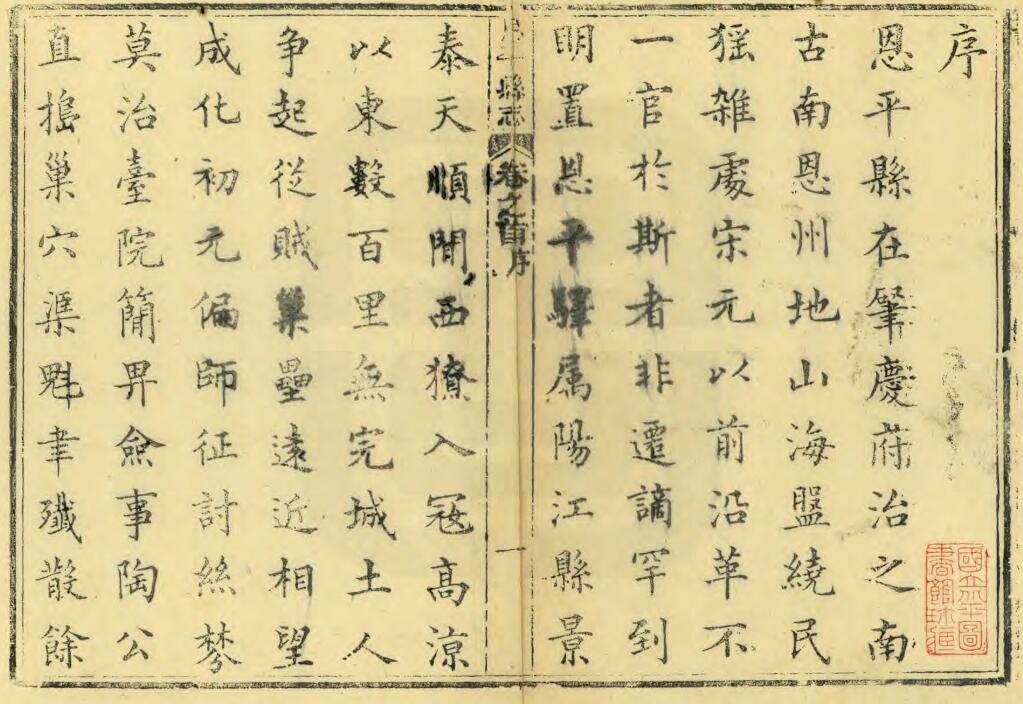 序
恩平縣在肇慶府治之南
古南恩州地山海盤繞民
猺雜處宋元以前沿革不
一官於斯者非遷謫罕到
明置恩平驛属陽江縣景
縣志 卷之首 序 一
泰天順間西獠入冦高涼
以東數百里無完城土人
争起從賊巢壘遠近相望
成化初元偏師征討絲棼
莫治臺院簡畀僉事陶公
直搗巢穴渠魁聿殲散餘
國立北平圖書館收藏